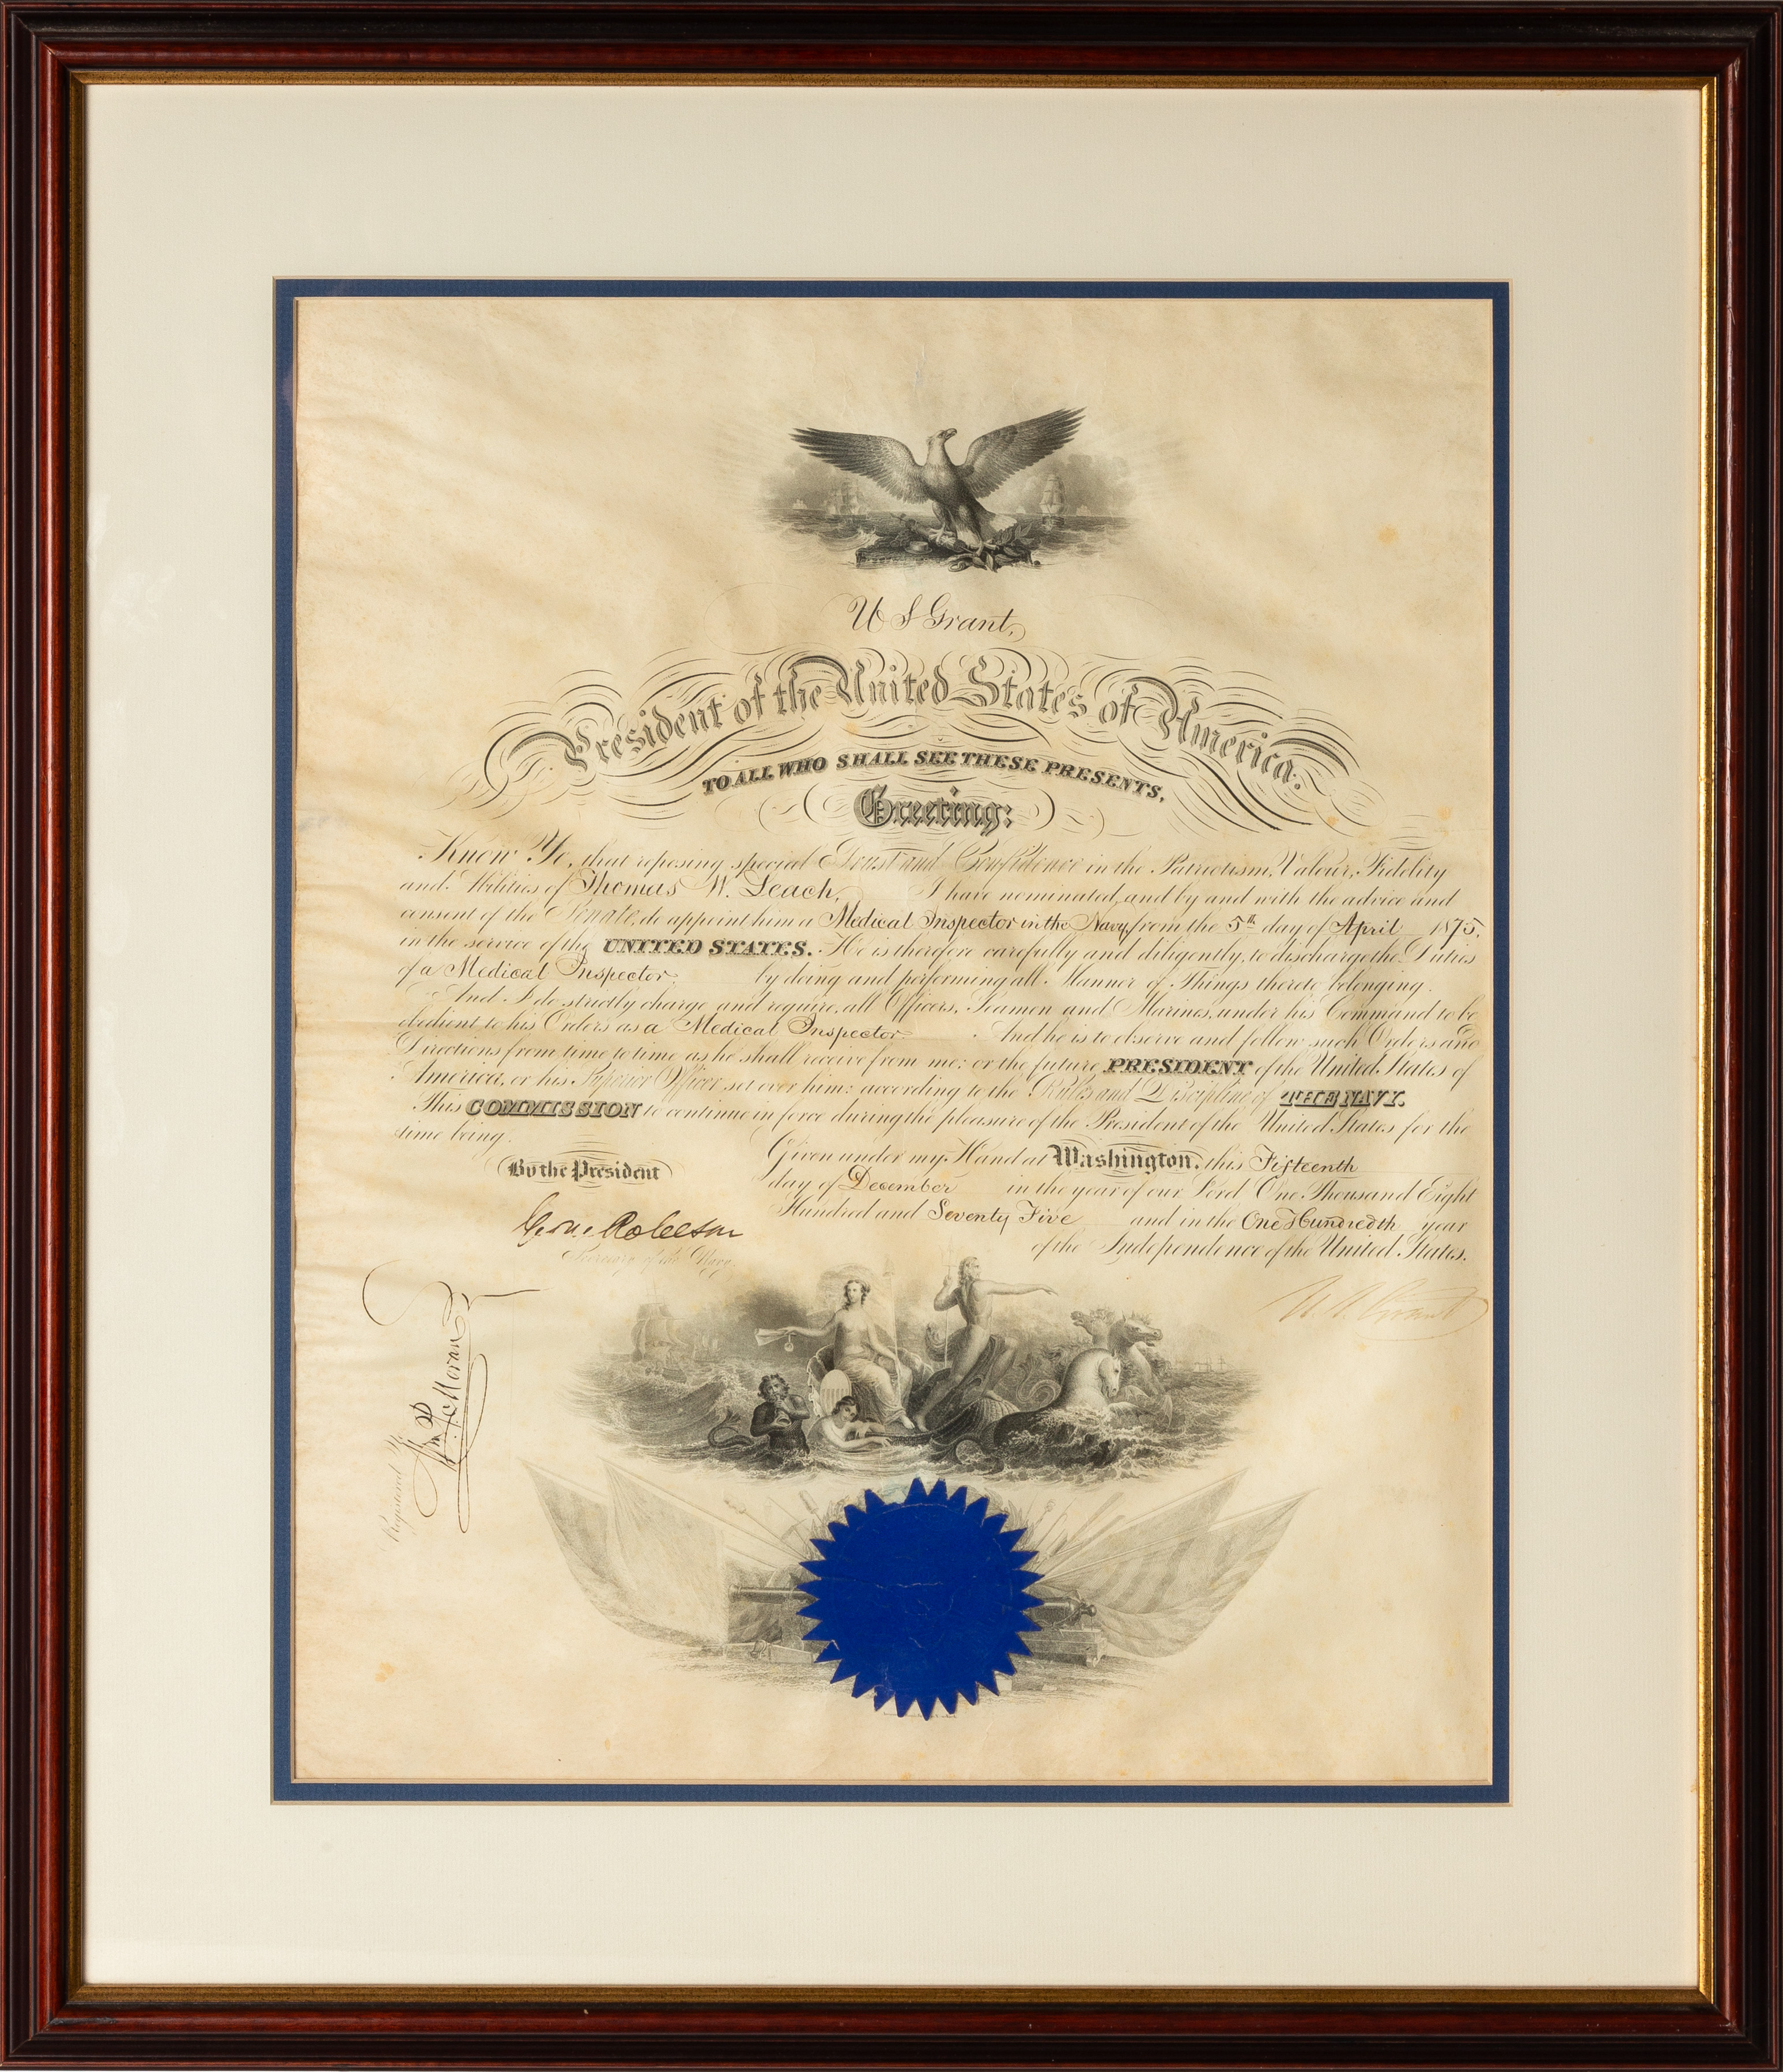 U S Grant,
President of the United States of America.
TO ALL WHO SHALL SEE THESE PRESENTS,
Greeting:
Know Ye, that reposing special Trust and Confidence in the Patriotism, Valour, Fidelity
and Abilities of Thomas W. Leach, I have nominated, and by and with the advice and
consent of the Senate, do appoint him a Medical Inspector in the Navy from the 5th day of April 1875.
in the service of the UNITED STATES. He is therefore carefully and diligently, to discharge the Duties
of a Medical Inspector by doing and performing all Manner of Things thereto belonging.
And I do strictly charge and require, all Officers, Seamen and Marines, under his Command to be
obedient to his Orders as a Medical Inspector. And he is to observe and follow such Orders and
Directions from time to time as he shall receive from me: or the future PRESIDENT of the United States of
America, or his Superior Officer set over him: according to the Rules and Discipline of THE NAVY.
This COMMISSION to continue in force during the pleasure of the President of the United States for the
time being.
Given under my Hand at Washington, this Fifteenth
By the President
day of December in the year of our Lord One Thousand Eight
Hundred and Seventy Five and in the One Hundredth year
Geo. M. Robeson
of the Independence of the United States.
Secretary of the Navy.
U. S. Grant
Registered
Wm P Moran